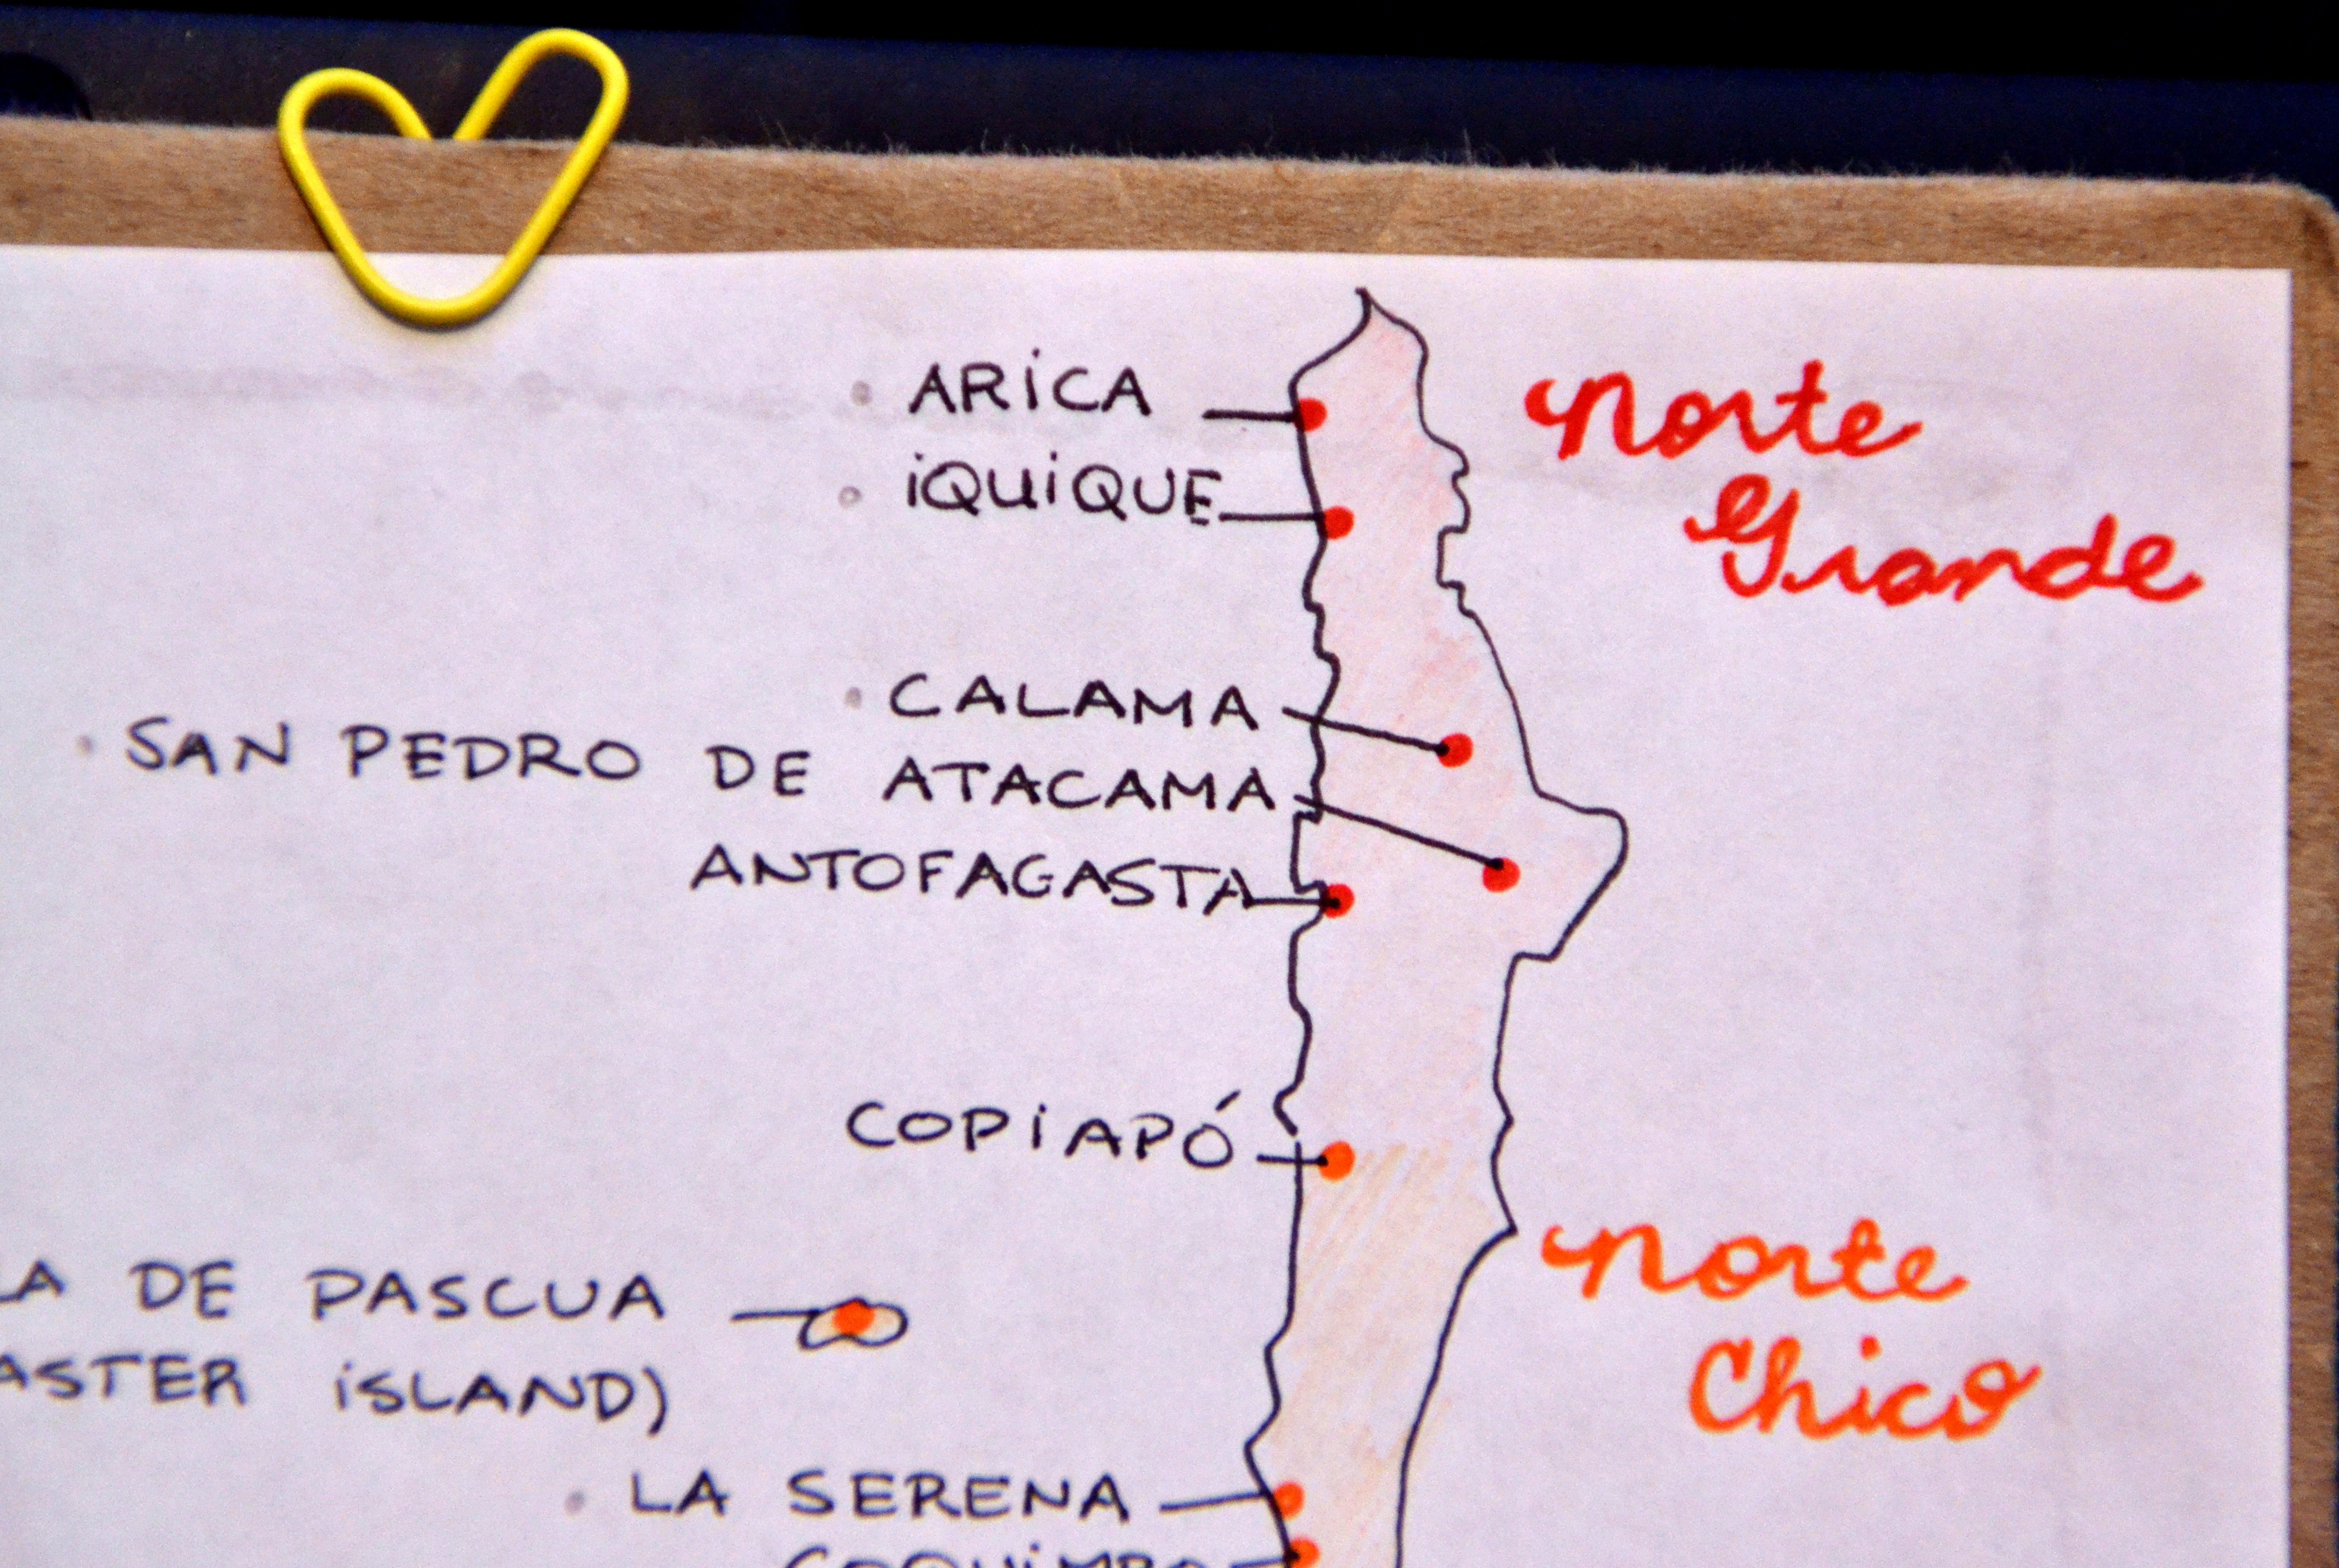 ARiCA
Norte
iQUiQUE
Grande
CALAMA
SAN PEDRO DE ATACAMA
ANTOFAGASTA
COPiAPÓ
Norte
LA DE PASCUA
Chico
ASTER iSLAND)
LA SERENA
COQUiMBO